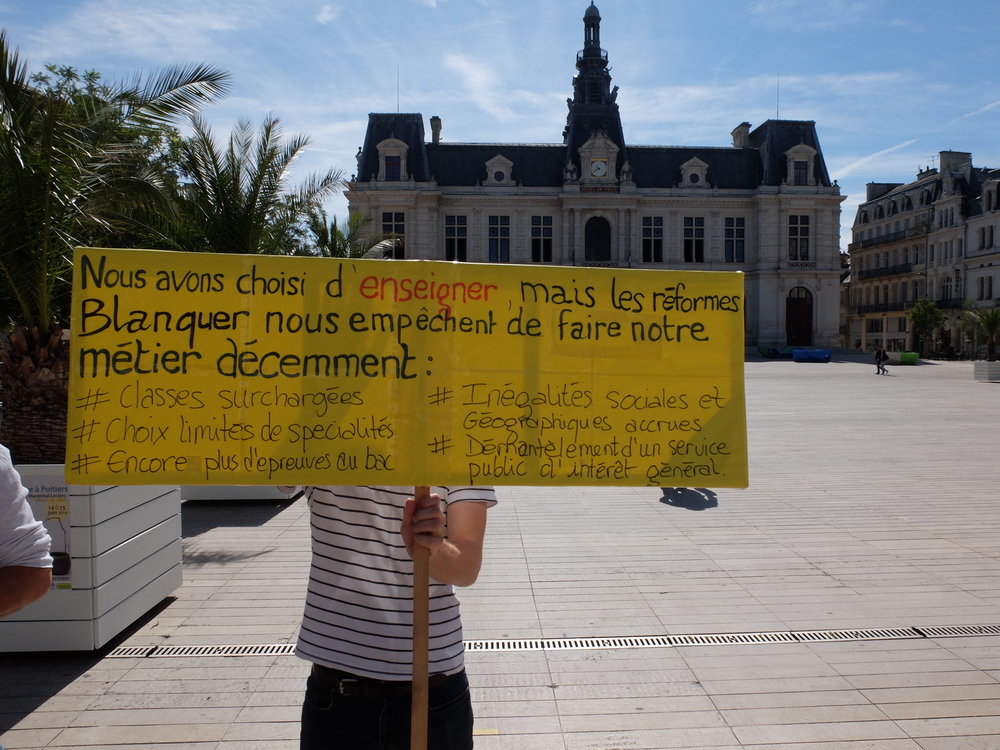 Nous avons choisi d'enseigner, mais les réformes
Blanquer nous empêchent de faire notre
métier décemment :
# Classes surchargées
# Choix limités de spécialités
# Encore plus d'epreuves au bac
# Inégalités sociales et
Géographiques accrues
# Démantèlement d'un service
public d'intérêt général.
à Poitiers